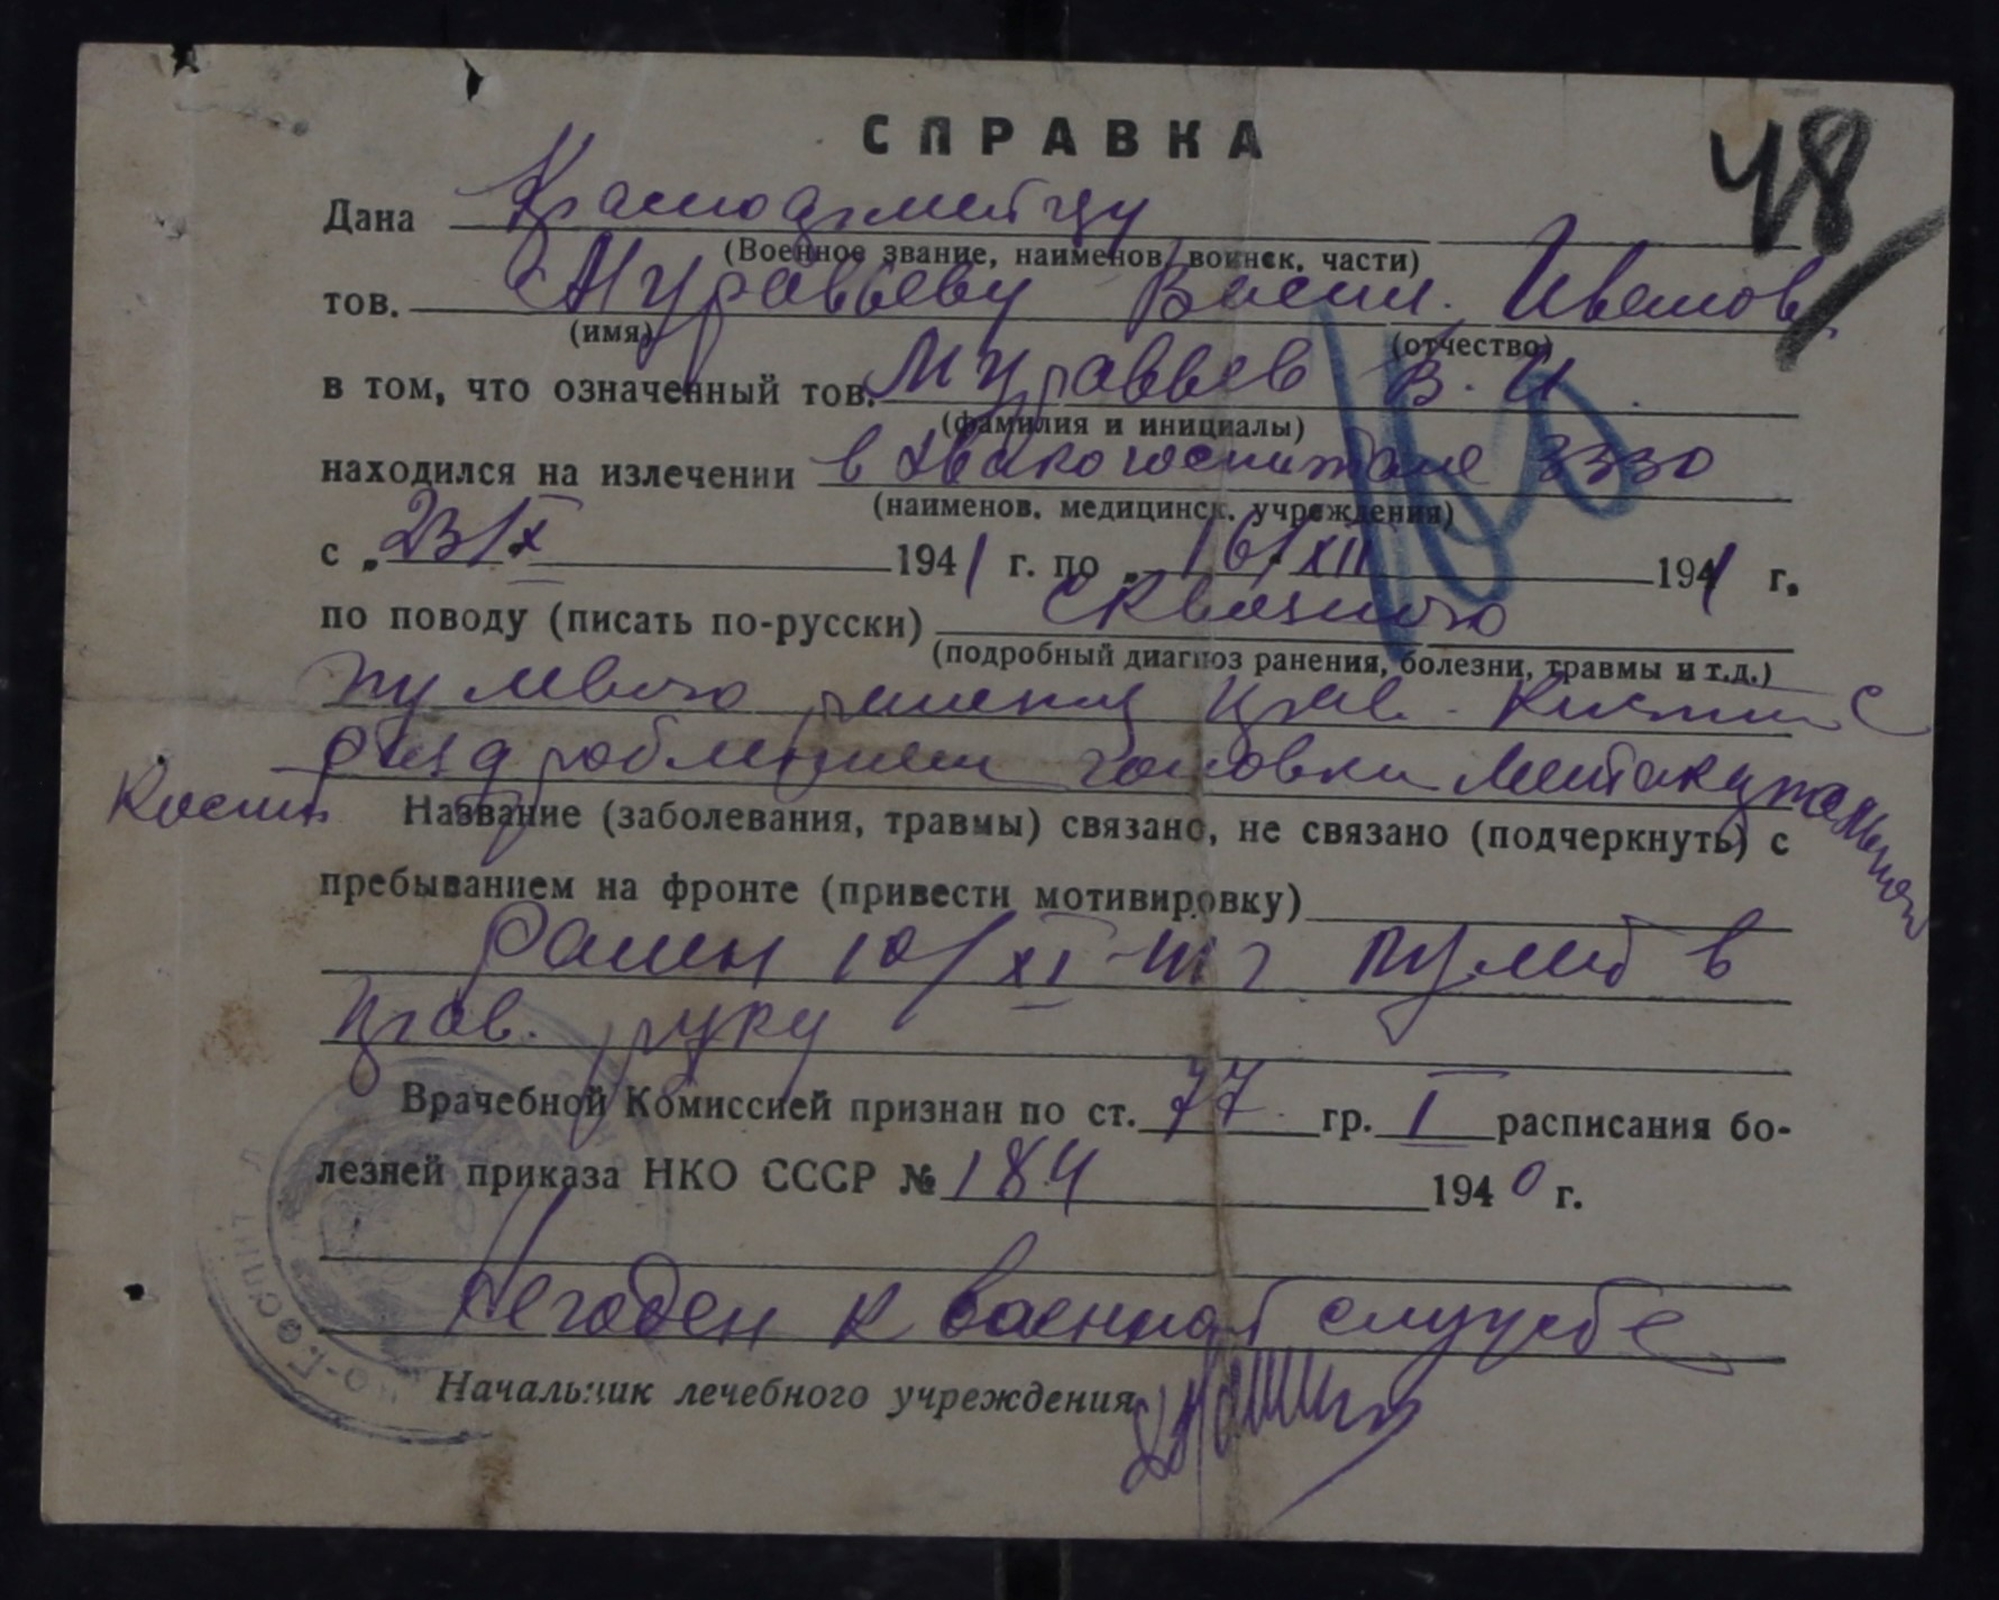 СПРАВКА
48
Дана Красноармейцу
(Военное звание, наименов. воинск. части)
тов. Муравьеву Васил. Иванов.
(имя) (отчество)
в том, что означенный тов. Муравьев В. И
(фамилия и инициалы)
находился на излечении в Эвакогоспитале 3330
(наименов. медицинск. учреждения)
с „23/X 1941 г. по „16/XII 1941 г.
по поводу (писать по-русски) сквозного
(подробный диагноз ранения, болезни, травмы и т.д.)
пулевого ранения прав. кисти с
раздроблением головки метакарпальной
кости
Название (заболевания, травмы) связано, не связано (подчеркнуть) с
пребыванием на фронте (привести мотивировку)
Ранен 10/XI-41 г пулей в
прав. руку
Врачебной Комиссией признан по ст. 77 гр. I расписания бо-
лезней приказа НКО СССР № 184 1940 г.
Негоден к военной службе
Начальник лечебного учреждения